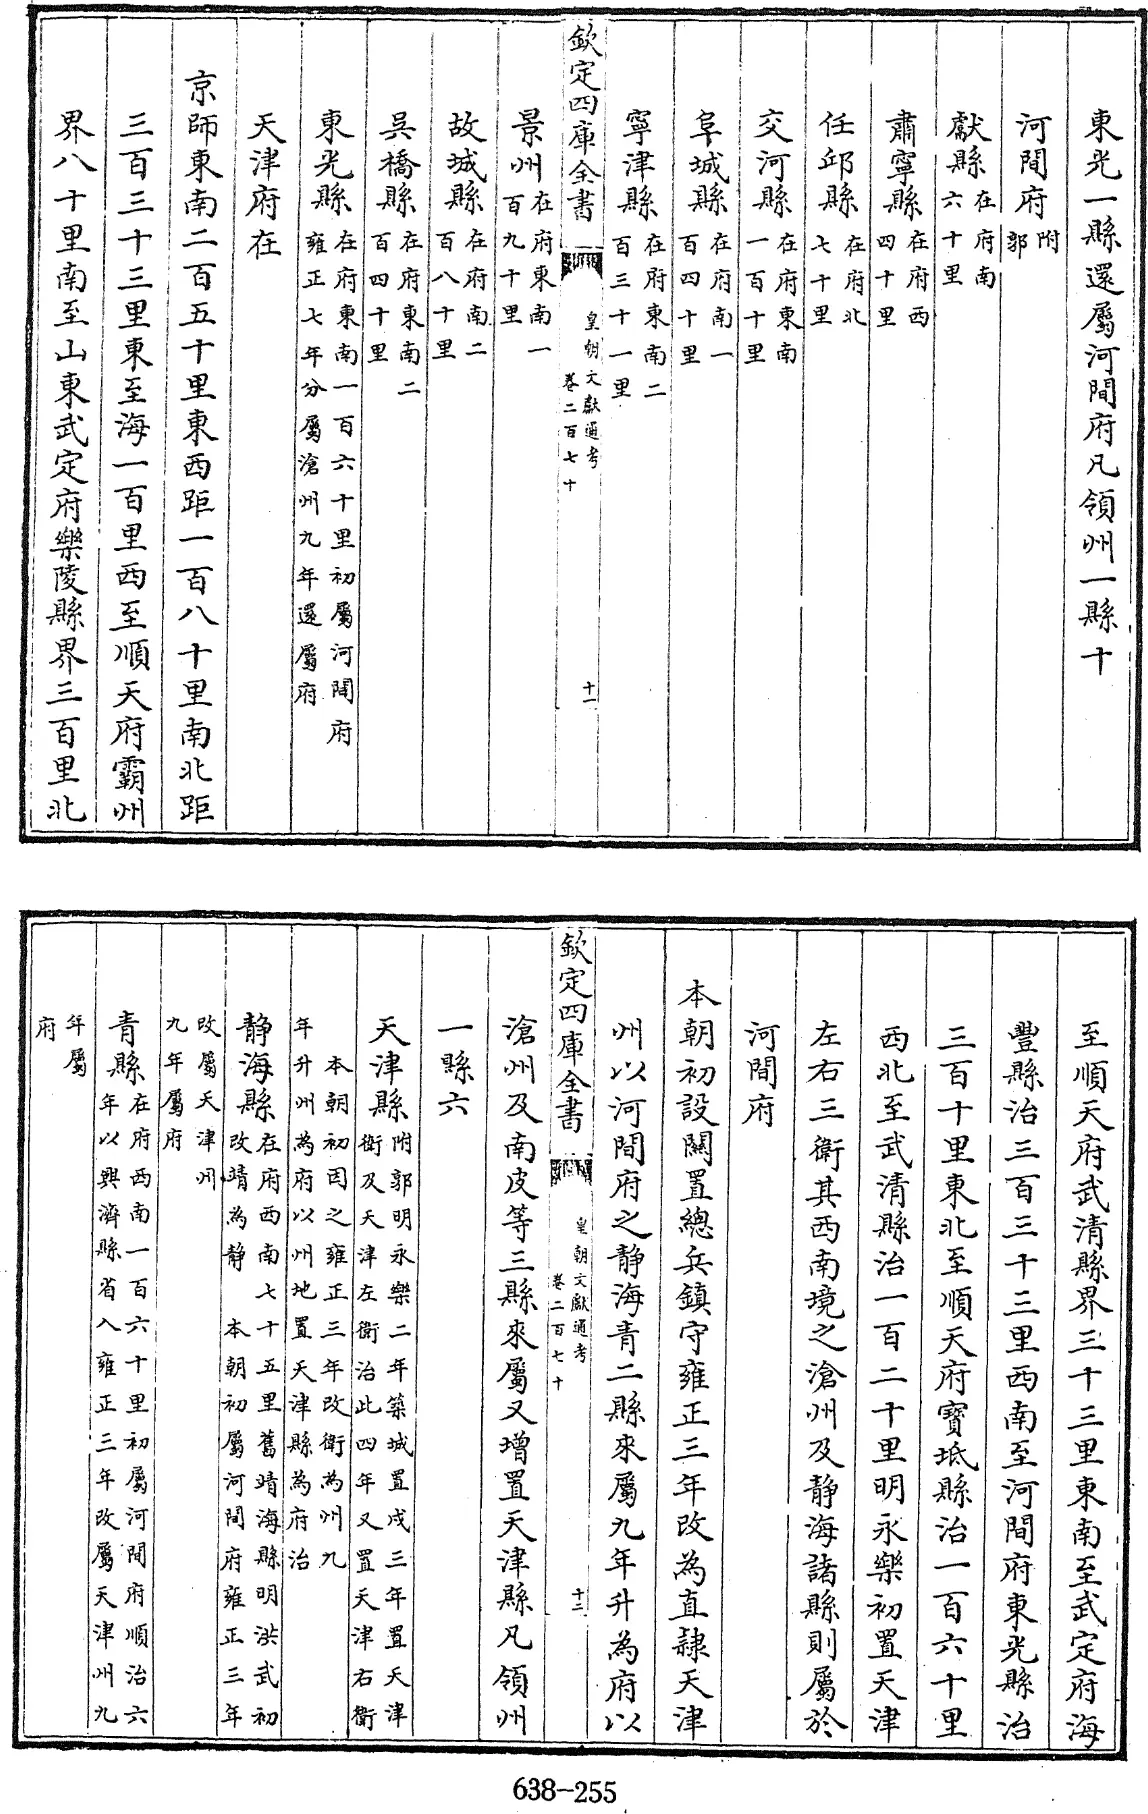 東光一縣還屬河間府凡領州一縣十
河間府附郭
獻縣在府南六十里
肅寧縣在府西四十里
任邱縣在府北七十里
交河縣在府東南一百十里
阜城縣在府南一百四十里
寧津縣在府東南二百三十一里
欽定四庫全書 皇朝文獻通考卷二百七十 十一
景州在府東南一百九十里
故城縣在府南二百八十里
吳橋縣在府東南二百四十里
東光縣在府東南一百六十里初屬河間府雍正七年分屬滄州九年還屬府
天津府在
京師東南二百五十里東西距一百八十里南北距
三百三十三里東至海一百里西至順天府霸州
界八十里南至山東武定府樂陵縣界三百里北
至順天府武清縣界三十三里東南至武定府海
豐縣治三百三十三里西南至河間府東光縣治
三百十里東北至順天府寶坻縣治一百六十里
西北至武清縣治一百二十里明永樂初置天津
左右三衛其西南境之滄州及靜海諸縣則屬於
河間府
本朝初設關置總兵鎮守雍正三年改為直隸天津
州以河間府之靜海青二縣來屬九年升為府以
欽定四庫全書 皇朝文獻通考卷二百七十 十二
滄州及南皮等三縣來屬又增置天津縣凡領州
一縣六
天津縣附郭明永樂二年築城置戍三年置天津衛及天津左衛治此四年又置天津右衛
本朝初因之雍正三年改衛為州九年升州為府以州地置天津縣為府治
靜海縣在府西南七十五里舊靖海縣明洪武初改靖為靜 本朝初屬河間府雍正三年
改屬天津州九年屬府
青縣在府西南一百六十里初屬河間府順治六年以興濟縣省入雍正三年改屬天津州九
年屬府
638-255